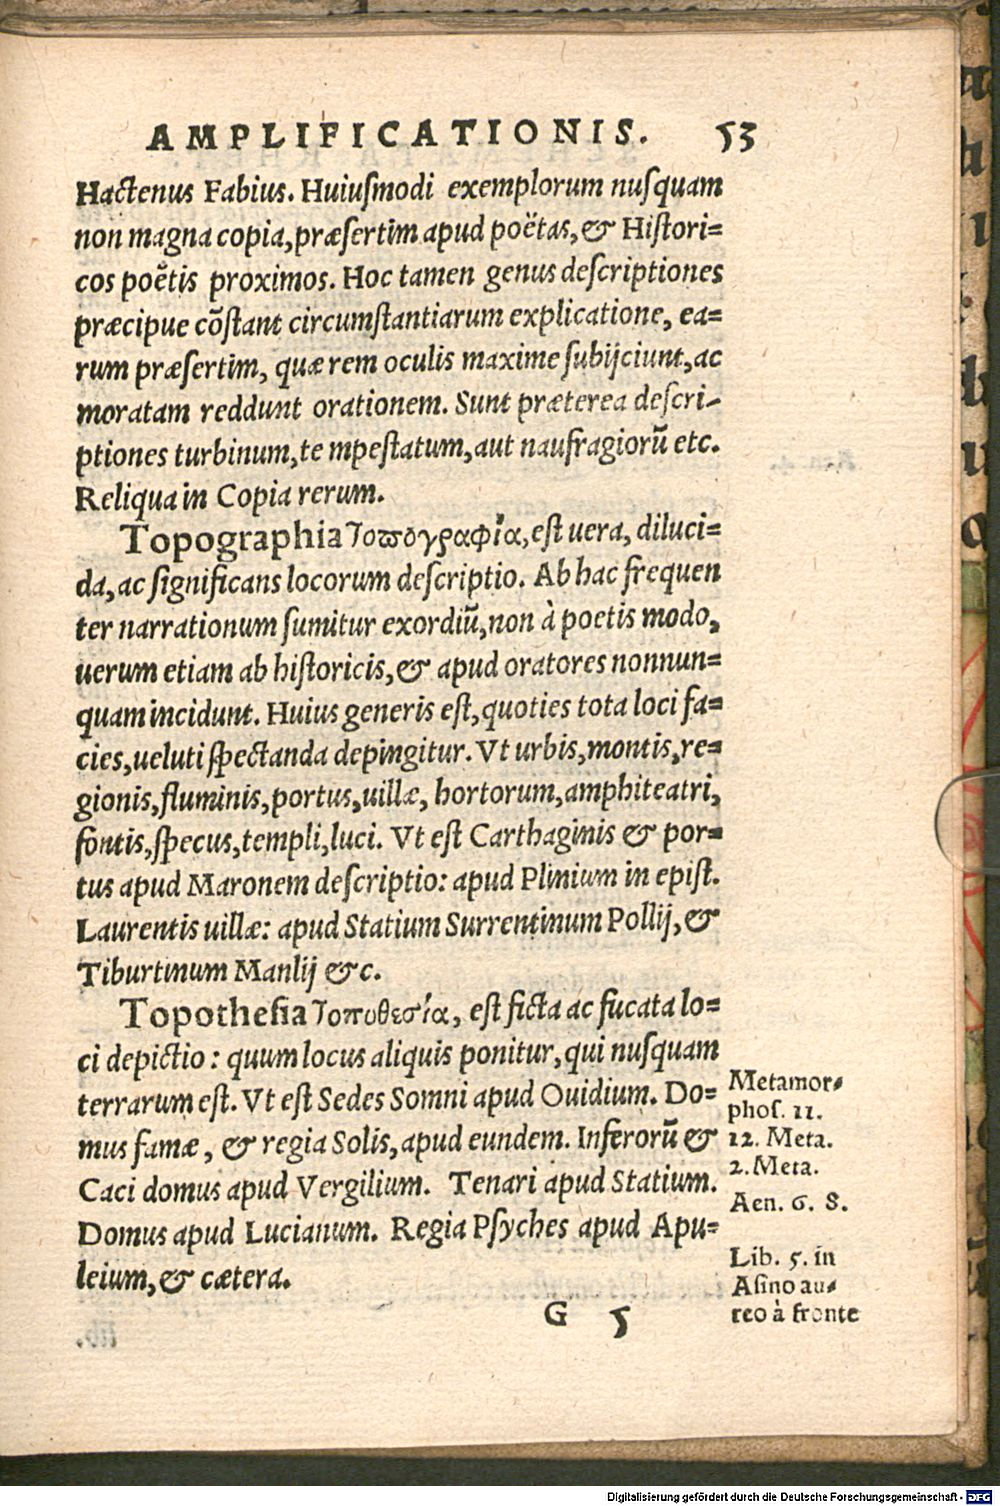 AMPLIFICATIONIS. 53
Hactenus Fabius. Huiuſmodi exemplorum nuſquam
non magna copia, præſertim apud poëtas, & Hiſtori=
cos poëtis proximos. Hoc tamen genus deſcriptiones
præcipue cōſtant circumſtantiarum explicatione, ea=
rum præſertim, quæ rem oculis maxime ſubijciunt, ac
moratam reddunt orationem. Sunt præterea deſcri-
ptiones turbinum, te mpeſtatum, aut naufragiorū etc.
Reliqua in Copia rerum.
Topographia Τοπογραφία, eſt uera, diluci=
da, ac ſignificans locorum deſcriptio. Ab hac frequen
ter narrationum ſumitur exordiū, non à poetis modo,
uerum etiam ab hiſtoricis, & apud oratores nonnun=
quam incidunt. Huius generis eſt, quoties tota loci fa=
cies, ueluti ſpectanda depingitur. Vt urbis, montis, re=
gionis, fluminis, portus, uillæ, hortorum, amphiteatri,
fontis, ſpecus, templi, luci. Vt eſt Carthaginis & por=
tus apud Maronem deſcriptio: apud Plinium in epiſt.
Laurentis uillæ: apud Statium Surrentinum Pollij, &
Tiburtinum Manlij &c.
Topotheſia Τοποθεσία, eſt ficta ac fucata lo=
ci depictio: quum locus aliquis ponitur, qui nuſquam
terrarum eſt. Vt eſt Sedes Somni apud Ouidium. Do=
mus famæ, & regia Solis, apud eundem. Inferorū &
Caci domus apud Vergilium. Tenari apud Statium.
Domus apud Lucianum. Regia Pſyches apud Apu=
leium, & cætera.
Metamor=
phoſ. 11.
12. Meta.
2. Meta.
Aen. 6. 8.
Lib. 5. in
Aſino au=
reo à fronte
G 5
Digitalisierung gefördert durch die Deutsche Forschungsgemeinschaft - DFG